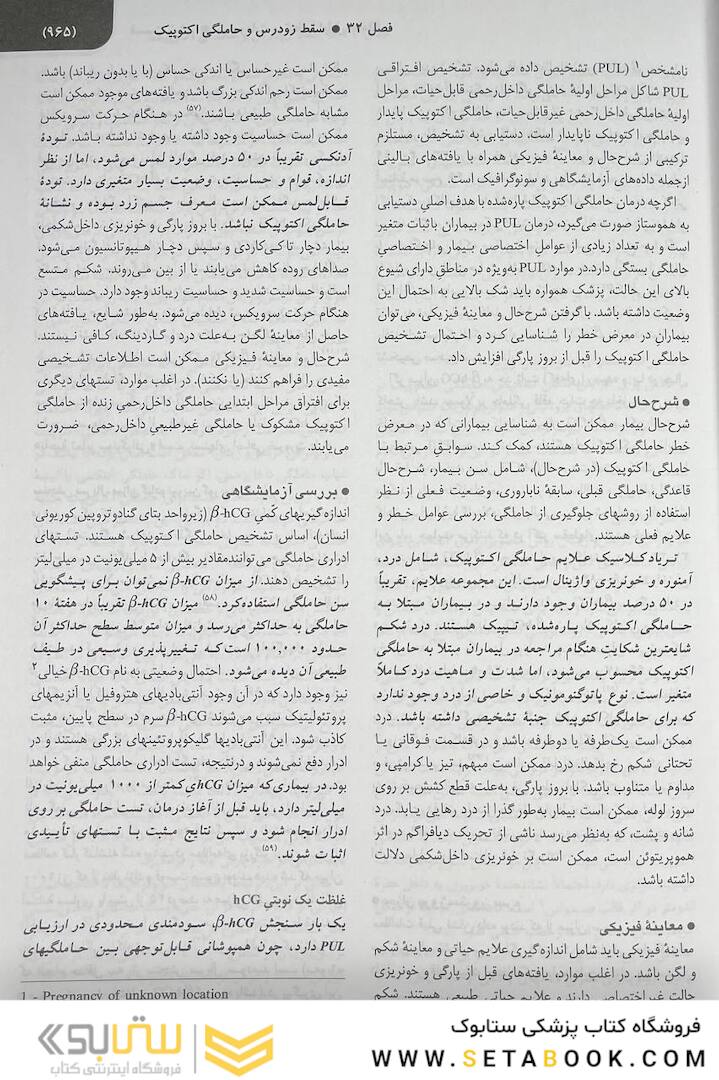 فصل ۳۲ ● سقط زودرس و حاملگی اکتوپیک
(۹۶۵)
نامشخص۱ (PUL) تشخیص داده می‌شود. تشخیص افتراقی
PUL شاکل مراحل اولیهٔ حاملگی داخل‌رحمی قابل‌حیات، مراحل
اولیهٔ حاملگی داخل‌رحمی غیرقابل‌حیات، حاملگی اکتوپیک پایدار
و حاملگی اکتوپیک ناپایدار است. دستیابی به تشخیص، مستلزم
ترکیبی از شرح‌حال و معاینهٔ فیزیکی همراه با یافته‌های بالینی
ازجمله داده‌های آزمایشگاهی و سونوگرافیک است.
اگرچه درمان حاملگی اکتوپیک پاره‌شده با هدف اصلی دستیابی
به هموستاز صورت می‌گیرد، درمان PUL در بیماران باثبات متغیر
است و به تعداد زیادی از عوامل اختصاصی بیمار و اختصاصیِ
حاملگی بستگی دارد.در موارد PUL به‌ویژه در مناطق دارای شیوع
بالای این حالت، پزشک همواره باید شک بالایی به احتمال این
وضعیت داشته باشد. با گرفتن شرح‌حال و معاینهٔ فیزیکی، می‌توان
بیماران در معرض خطر را شناسایی کرد و احتمال تشخیص
حاملگی اکتوپیک را قبل از بروز پارگی افزایش داد.
● شرح‌حال
شرح‌حال بیمار ممکن است به شناسایی بیمارانی که در معرض
خطر حاملگی اکتوپیک هستند، کمک کند. سوابق مرتبط با
حاملگی اکتوپیک (در شرح‌حال)، شامل سن بیمار، شرح‌حال
قاعدگی، حاملگی قبلی، سابقهٔ ناباروری، وضعیت فعلی از نظر
استفاده از روشهای جلوگیری از حاملگی، بررسی عوامل خطر و
علایم فعلی هستند.
تریاد کلاسیک علایم حاملگی اکتوپیک، شامل درد،
آمنوره و خونریزی واژینال است. این مجموعه علایم، تقریباً
در ۵۰ درصد بیماران وجود دارند و در بیماران مبتلا به
حاملگی اکتوپیک پاره‌شده، تیپیک هستند. درد شکم
شایعترین شکایت هنگام مراجعه در بیماران مبتلا به حاملگی
اکتوپیک محسوب می‌شود، اما شدت و ماهیت درد کاملاً
متغیر است. نوع پاتوگنومونیک و خاصی از درد وجود ندارد
که برای حاملگی اکتوپیک جنبهٔ تشخیصی داشته باشد. درد
ممکن است یک‌طرفه یا دوطرفه باشد و در قسمت فوقانی یا
تحتانی شکم رخ بدهد. درد ممکن است مبهم، تیز یا کرامپی، و
مداوم یا متناوب باشد. با بروز پارگی، به‌علت قطع کشش بر روی
سروز لوله، ممکن است بیمار به‌طور گذرا از درد رهایی یابد. درد
شانه و پشت، که به‌نظر می‌رسد ناشی از تحریک دیافراگم در اثر
هموپریتوئن است، ممکن است بر خونریزی داخل‌شکمی دلالت
داشته باشد.
● معاینهٔ فیزیکی
معاینهٔ فیزیکی باید شامل اندازه‌گیری علایم حیاتی و معاینهٔ شکم
و لگن باشد. در اغلب موارد، یافته‌های قبل از پارگی و خونریزی
حالت غیراختصاصی دارند و علایم حیاتی طبیعی هستند. شکم
ممکن است غیرحساس یا اندکی حساس (با یا بدون ریباند) باشد.
ممکن است رحم اندکی بزرگ باشد و یافته‌های موجود ممکن است
مشابه حاملگی طبیعی باشند.(۵۷) در هنگام حرکت سرویکس
ممکن است حساسیت وجود داشته یا وجود نداشته باشد. تودهٔ
آدنکسی تقریباً در ۵۰ درصد موارد لمس می‌شود، اما از نظر
اندازه، قوام و حساسیت، وضعیت بسیار متغیری دارد. تودهٔ
قابل‌لمس ممکن است معرف جسم زرد بوده و نشانهٔ
حاملگی اکتوپیک نباشد. با بروز پارگی و خونریزی داخل‌شکمی،
بیمار دچار تاکی‌کاردی و سپس دچار هیپوتانسیون می‌شود.
صداهای روده کاهش می‌یابند یا از بین می‌روند. شکم متسع
است و حساسیت شدید و حساسیت ریباند وجود دارد. حساسیت در
هنگام حرکت سرویکس، دیده می‌شود. به‌طور شایع، یافته‌های
حاصل از معاینهٔ لگن به‌علت درد و گاردینگ، کافی نیستند.
شرح‌حال و معاینهٔ فیزیکی ممکن است اطلاعات تشخیصی
مفیدی را فراهم کنند (یا نکنند). در اغلب موارد، تستهای دیگری
برای افتراق مراحل ابتدایی حاملگی داخل‌رحمیِ زنده از حاملگی
اکتوپیک مشکوک یا حاملگی غیرطبیعیِ داخل‌رحمی، ضرورت
می‌یابند.
● بررسی آزمایشگاهی
اندازه‌گیریهای کمّیِ β-hCG (زیرواحد بتای گنادوتروپین کوریونی
انسان)، اساس تشخیص حاملگی اکتوپیک هستند. تستهای
ادراری حاملگی می‌توانندمقادیر بیش از ۵ میلی‌یونیت در میلی‌لیتر
را تشخیص دهند. از میزان β-hCG نمی‌توان برای پیشگویی
سن حاملگی استفاده‌کرد.(۵۸) میزان β-hCG تقریباً در هفتهٔ ۱۰
حاملگی به حداکثر می‌رسد و میزان متوسط سطح حداکثر آن
حدود ۱۰۰,۰۰۰ است که تغییرپذیری وسیعی در طیف
طبیعی آن دیده می‌شود. احتمال وضعیتی به نام β-hCG خیالی۲
نیز وجود دارد که در آن وجود آنتی‌بادیهای هتروفیل یا آنزیمهای
پروتئولیتیک سبب می‌شوند β-hCG سرم در سطح پایین، مثبت
کاذب شود. این آنتی‌بادیها گلیکوپروتئینهای بزرگی هستند و در
ادرار دفع نمی‌شوند و درنتیجه، تست ادراری حاملگی منفی خواهد
بود. در بیماری‌که میزان hCGیِ کمتر از ۱۰۰۰ میلی‌یونیت در
میلی‌لیتر دارد، باید قبل از آغاز درمان، تست حاملگی بر روی
ادرار انجام شود و سپس نتایج مثبت با تستهای تأییدی
اثبات شوند.(۵۹)
غلظت یک نوبتیِ hCG
یک بار سنجش β-hCG، سودمندی محدودی در ارزیابی
PUL دارد، چون همپوشانی قابل‌توجهی بین حاملگیهای
1 - Pregnancy of unknown location
فروشگاه کتاب پزشکی ستابوک
WWW.SETABOOK.COM
ستابوک
فروشگاه اینترنتی کتاب